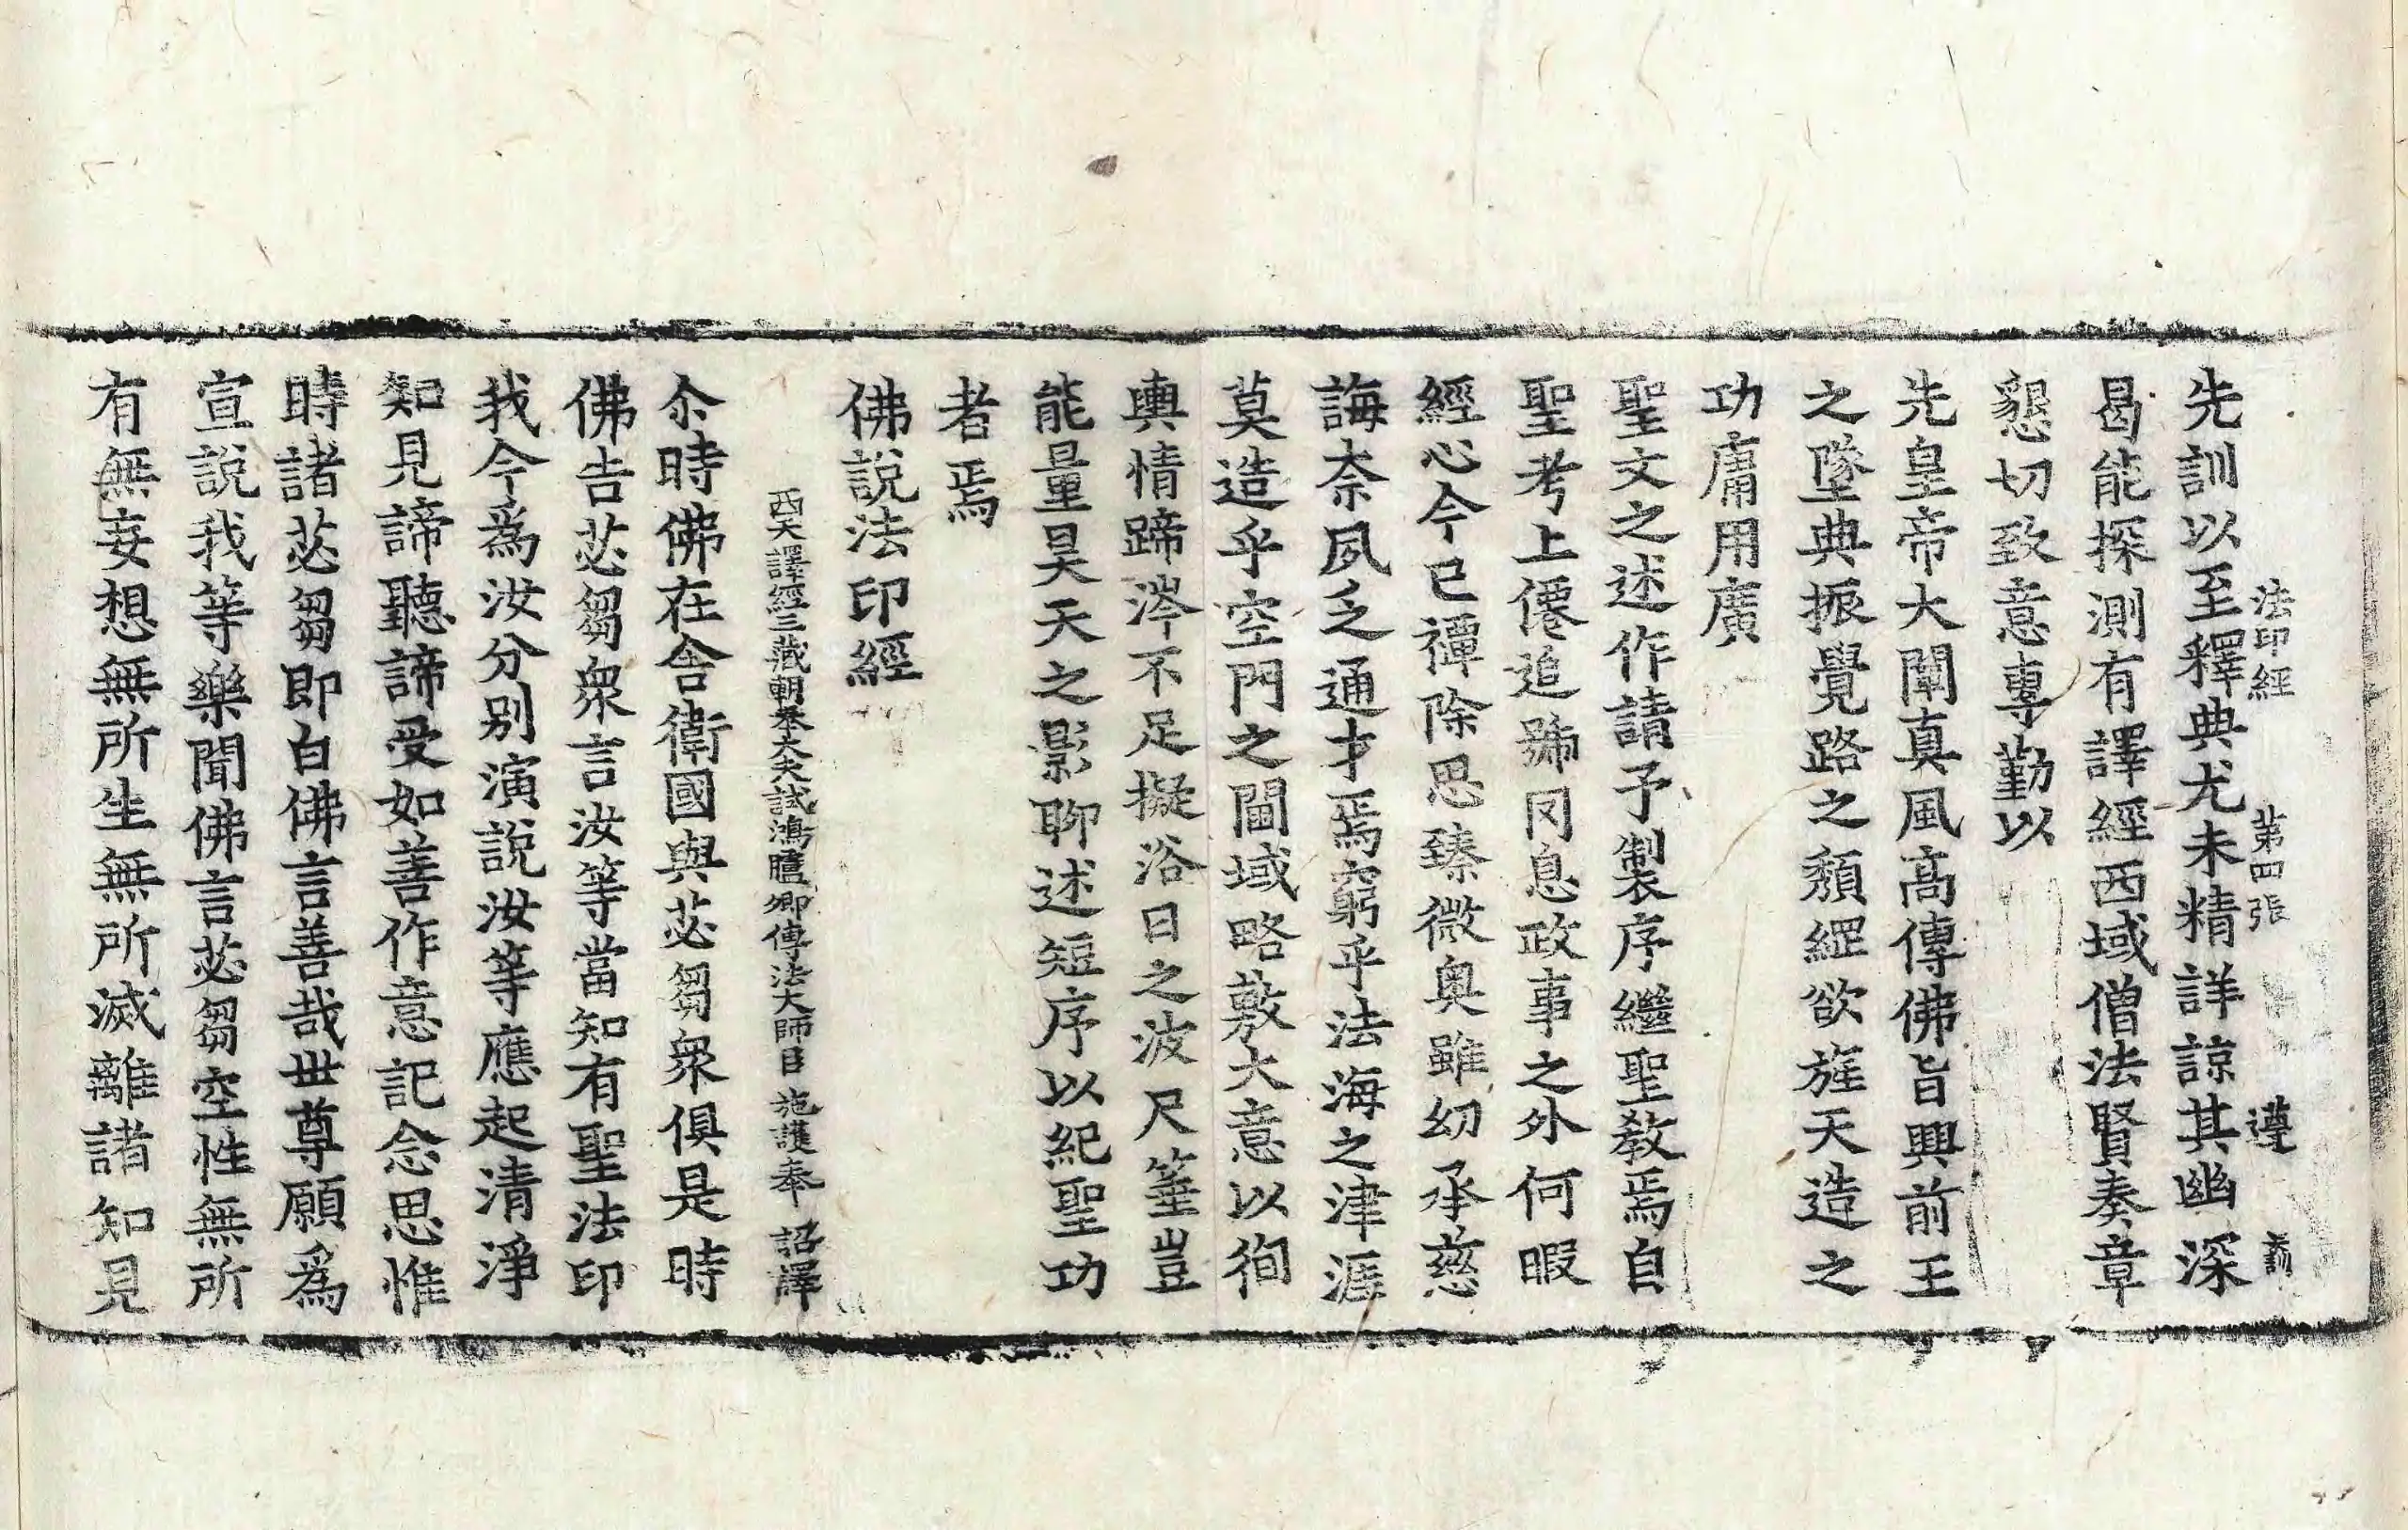 法印經 第四張 遵
先訓以至釋典尤未精詳諒其幽深
曷能探測有譯經西域僧法賢奏章
懇切致意專勤以
先皇帝大闡真風高傳佛旨興前王
之墜典振覺路之頹綱欲旌天造之
功庸用廣
聖文之述作請予製序繼聖教焉自
聖考上僊追號罔息政事之外何暇
經心今已禫除思臻微奧雖幼承慈
誨柰夙乏通才焉窮乎法海之津涯
莫造乎空門之閫域略敷大意以徇
輿情蹄涔不足擬浴日之波尺箠豈
能量昊天之影聊述短序以紀聖功
者焉
佛說法印經
西天譯經三藏朝奉大夫試鴻臚卿傳法大師臣 施護奉 詔譯
尒時佛在舍衛國與苾芻衆俱是時
佛告苾芻衆言汝等當知有聖法印
我今爲汝分别演說汝等應起清淨
知見諦聽諦受如善作意記念思惟
時諸苾芻即白佛言善哉世尊願爲
宣說我等樂聞佛言苾芻空性無所
有無妄想無所生無所滅離諸知見